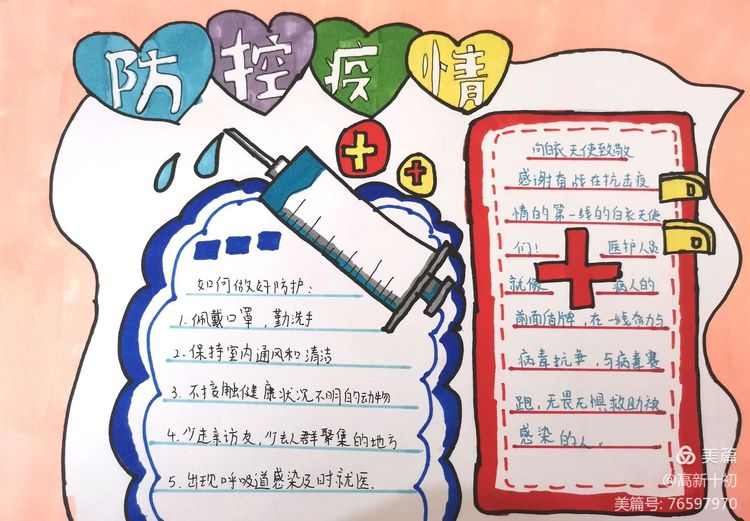 防控疫情
如何做好防护:
1.佩戴口罩,勤洗手
2.保持室内通风和清洁
3.不接触健康状况不明的动物
4.少走亲访友,少去人群聚集的地方
5.出现呼吸道感染及时就医.
向白衣天使致敬
感谢奋战在抗击疫
情的第一线的白衣天使
们! 医护人员
就像 病人的
前面盾牌,在一线奋力与
病毒抗争,与病毒赛
跑,无畏无惧救助被
感染的人.
美篇
@高新十初
美篇号: 76597970